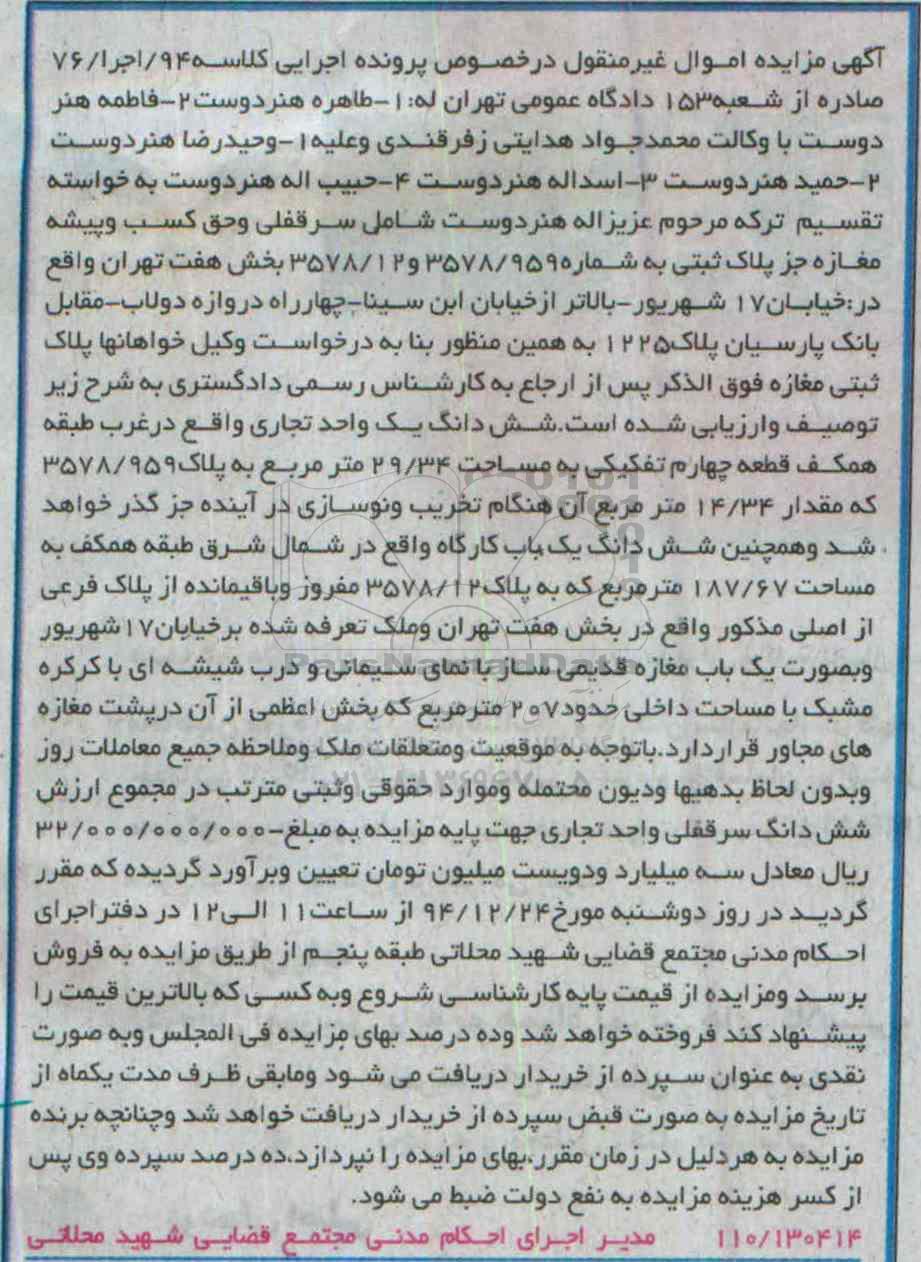 آگهی مزایده اموال غیرمنقول درخصوص پرونده اجرایی کلاسه۹۴/اجرا/۷۶
صادره از شعبه۱۵۳ دادگاه عمومی تهران له:۱-طاهره هنردوست۲-فاطمه هنر
دوست با وکالت محمدجواد هدایتی زفرقندی وعلیه۱-وحیدرضا هنردوست
۲-حمید هنردوست ۳-اسداله هنردوست ۴-حبیب اله هنردوست به خواسته
تقسیم ترکه مرحوم عزیزاله هنردوست شامل سرقفلی وحق کسب وپیشه
مغازه جز پلاک ثبتی به شماره۳۵۷۸/۹۵۹ و۳۵۷۸/۱۲ بخش هفت تهران واقع
در:خیابان۱۷ شهریور-بالاتر ازخیابان ابن سینا-چهارراه دروازه دولاب-مقابل
بانک پارسیان پلاک۱۲۲۵ به همین منظور بنا به درخواست وکیل خواهانها پلاک
ثبتی مغازه فوق الذکر پس از ارجاع به کارشناس رسمی دادگستری به شرح زیر
توصیف وارزیابی شده است.شش دانگ یک واحد تجاری واقع درغرب طبقه
همکف قطعه چهارم تفکیکی به مساحت ۲۹/۳۴ متر مربع به پلاک۳۵۷۸/۹۵۹
که مقدار ۱۴/۳۴ متر مربع آن هنگام تخریب ونوسازی در آینده جز گذر خواهد
شد وهمچنین شش دانگ یک باب کارگاه واقع در شمال شرق طبقه همکف به
مساحت ۱۸۷/۶۷ مترمربع که به پلاک۳۵۷۸/۱۲ مفروز وباقیمانده از پلاک فرعی
از اصلی مذکور واقع در بخش هفت تهران وملک تعرفه شده برخیابان۱۷شهریور
وبصورت یک باب مغازه قدیمی ساز با نمای سلیمانی و درب شیشه ای با کرکره
مشبک با مساحت داخلی حدود۲۰۷ مترمربع که بخش اعظمی از آن درپشت مغازه
های مجاور قراردارد.باتوجه به موقعیت ومتعلقات ملک وملاحظه جمیع معاملات روز
وبدون لحاظ بدهیها ودیون محتمله وموارد حقوقی وثبتی مترتب در مجموع ارزش
شش دانگ سرقفلی واحد تجاری جهت پایه مزایده به مبلغ-۳۲/۰۰۰/۰۰۰/۰۰۰
ریال معادل سه میلیارد ودویست میلیون تومان تعیین وبرآورد گردیده که مقرر
گردید در روز دوشنبه مورخ۹۴/۱۲/۲۴ از ساعت۱۱ الی۱۲ در دفتراجرای
احکام مدنی مجتمع قضایی شهید محلاتی طبقه پنجم از طریق مزایده به فروش
برسد ومزایده از قیمت پایه کارشناسی شروع وبه کسی که بالاترین قیمت را
پیشنهاد کند فروخته خواهد شد وده درصد بهای مزایده فی المجلس وبه صورت
نقدی به عنوان سپرده از خریدار دریافت می شود ومابقی ظرف مدت یکماه از
تاریخ مزایده به صورت قبض سپرده از خریدار دریافت خواهد شد وچنانچه برنده
مزایده به هردلیل در زمان مقرر،بهای مزایده را نپردازد،ده درصد سپرده وی پس
از کسر هزینه مزایده به نفع دولت ضبط می شود.
۱۱۰/۱۳۰۴۱۴ مدیر اجرای احکام مدنی مجتمع قضایی شهید محلاتی